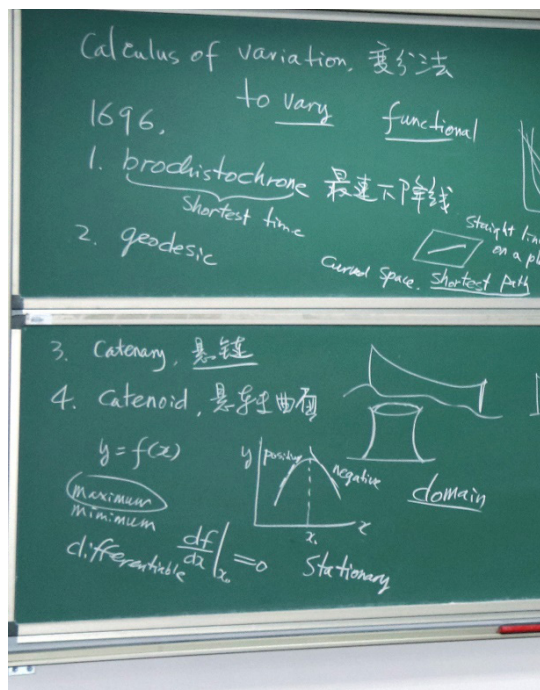 Calculus of variation, 变分法
to vary functional
1696,
1. brochistochrone 最速下降线
Shortest time
2. geodesic
Straight line
on a pl
Curved Space. Shortest path
3. Catenary, 悬链
4. Catenoid, 悬转曲面
y = f(x)
maximum
minimum
y positive negative
x₀ x
domain
differentiable df/dx|x₀ = 0 Stationary